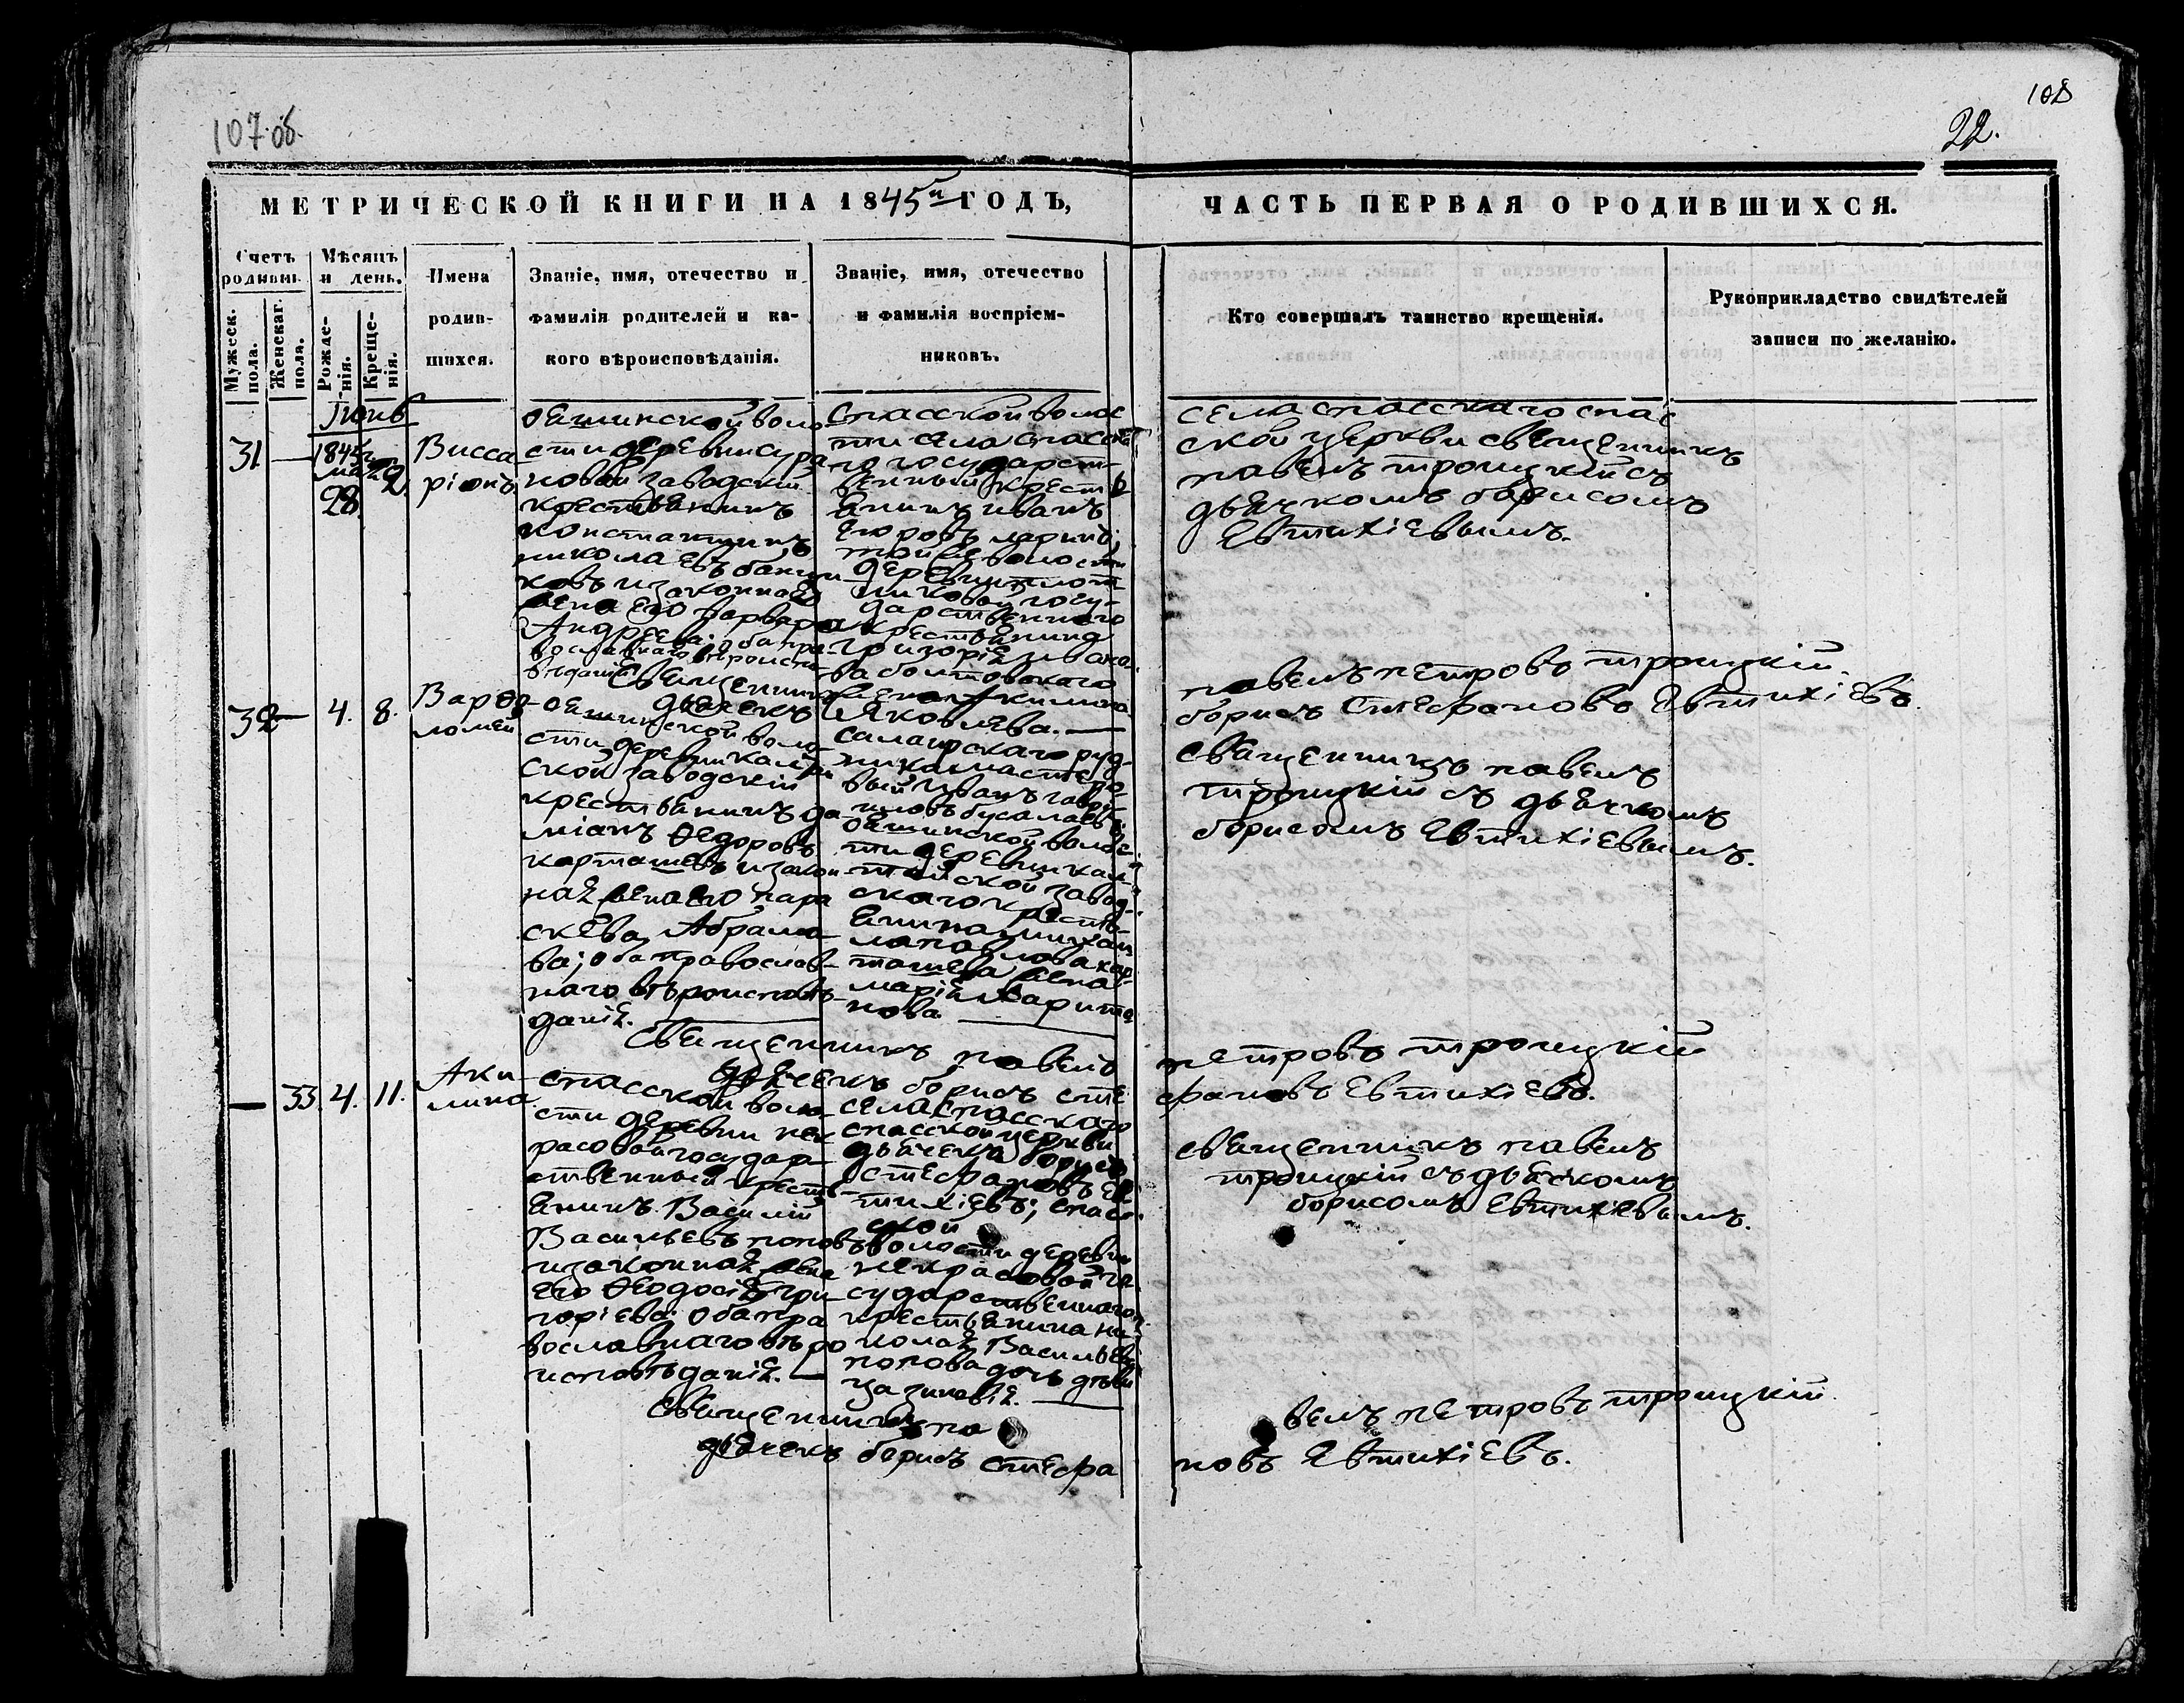 107 об.
108
22.
МЕТРИЧЕСКОЙ КНИГИ НА 1845й ГОДЪ,
ЧАСТЬ ПЕРВАЯ О РОДИВШИХСЯ.
Счетъ родивш.
Мужеск. пола.
Женскаг. пола.
Мѣсяцъ и день.
Рожде-
нія.
Креще-
нія.
Имена
родив-
шихся.
Званіе, имя, отечество и
фамилія родителей и ка-
кого вѣроисповѣданія.
Званіе, имя, отечество
и фамилія воспріем-
никовъ.
Кто совершалъ таинство крещенія.
Рукоприкладство свидѣтелей
записи по желанію.
31
28
2
Висса
ріонъ
сти деревни сура
новой заводскій
крестьянинъ
константинъ
николаевъ
ковъ и законная
жена его варвара
Андреева; оба пра-
вославнаго вѣроиспо-
вѣданія
спасской волос
ти села спасска
го государст-
венный крестья
янинъ иванъ
Егоровъ
той же волости
деревни
никовой госу-
дарственнаго
крестьянина
григорія ивано-
ва
жена Акилина
Яковлева.
села спасскаго спас
ской церкви священникъ
павелъ троицкій съ
дьячкомъ борисомъ
Евтихіевымъ.
Священникъ павелъ петровъ троицкій.
дьячекъ борисъ Стефановъ Евтихіевъ.
32 — 4. 8.
Варфо
ломей
ской воло-
сти, деревни
ской заводскій
крестьянинъ да
міанъ Ѳедоровъ
карташевъ и закон
ная жена его пара
скева Абрамо
ва; оба православ-
наго вѣроисповѣ-
данія.
салаирскаго руд-
ника мастеро
вый иванъ гаври
ловъ
ской волос
ти деревни
ской завод-
скаго кресть
янина михаи
ла
кар
ташева жена
марія Харито
нова
Священникъ павелъ
троицкій съ дьячкомъ
борисомъ Евтихіевымъ.
Священникъ павелъ петровъ троицкій
дьячекъ борисъ стефановъ Евтихіевъ.
— 33. 4. 11.
Аки
лина
спасской воло-
сти деревни нек
расовой государ-
ственный кресть-
янинъ Василій
Васильевъ поповъ
и законная жена
его Ѳеодосія гри-
горіева; оба пра
вославнаго вѣро
исповѣданія. —
села спасскаго
спасской церкви
дьячекъ борисъ
стефановъ Ев
тихіевъ; спас-
ской
волости деревни
некрасовой го
сударственнаго
крестьянина ни-
колая Васильева
попова дочь дѣви
ца зиновія. —
священникъ павелъ
троицкій съ дьячкомъ
борисомъ Евтихіевымъ.
Священникъ па велъ петровъ троицкій.
дьячекъ борисъ стефа новъ Евтихіевъ.